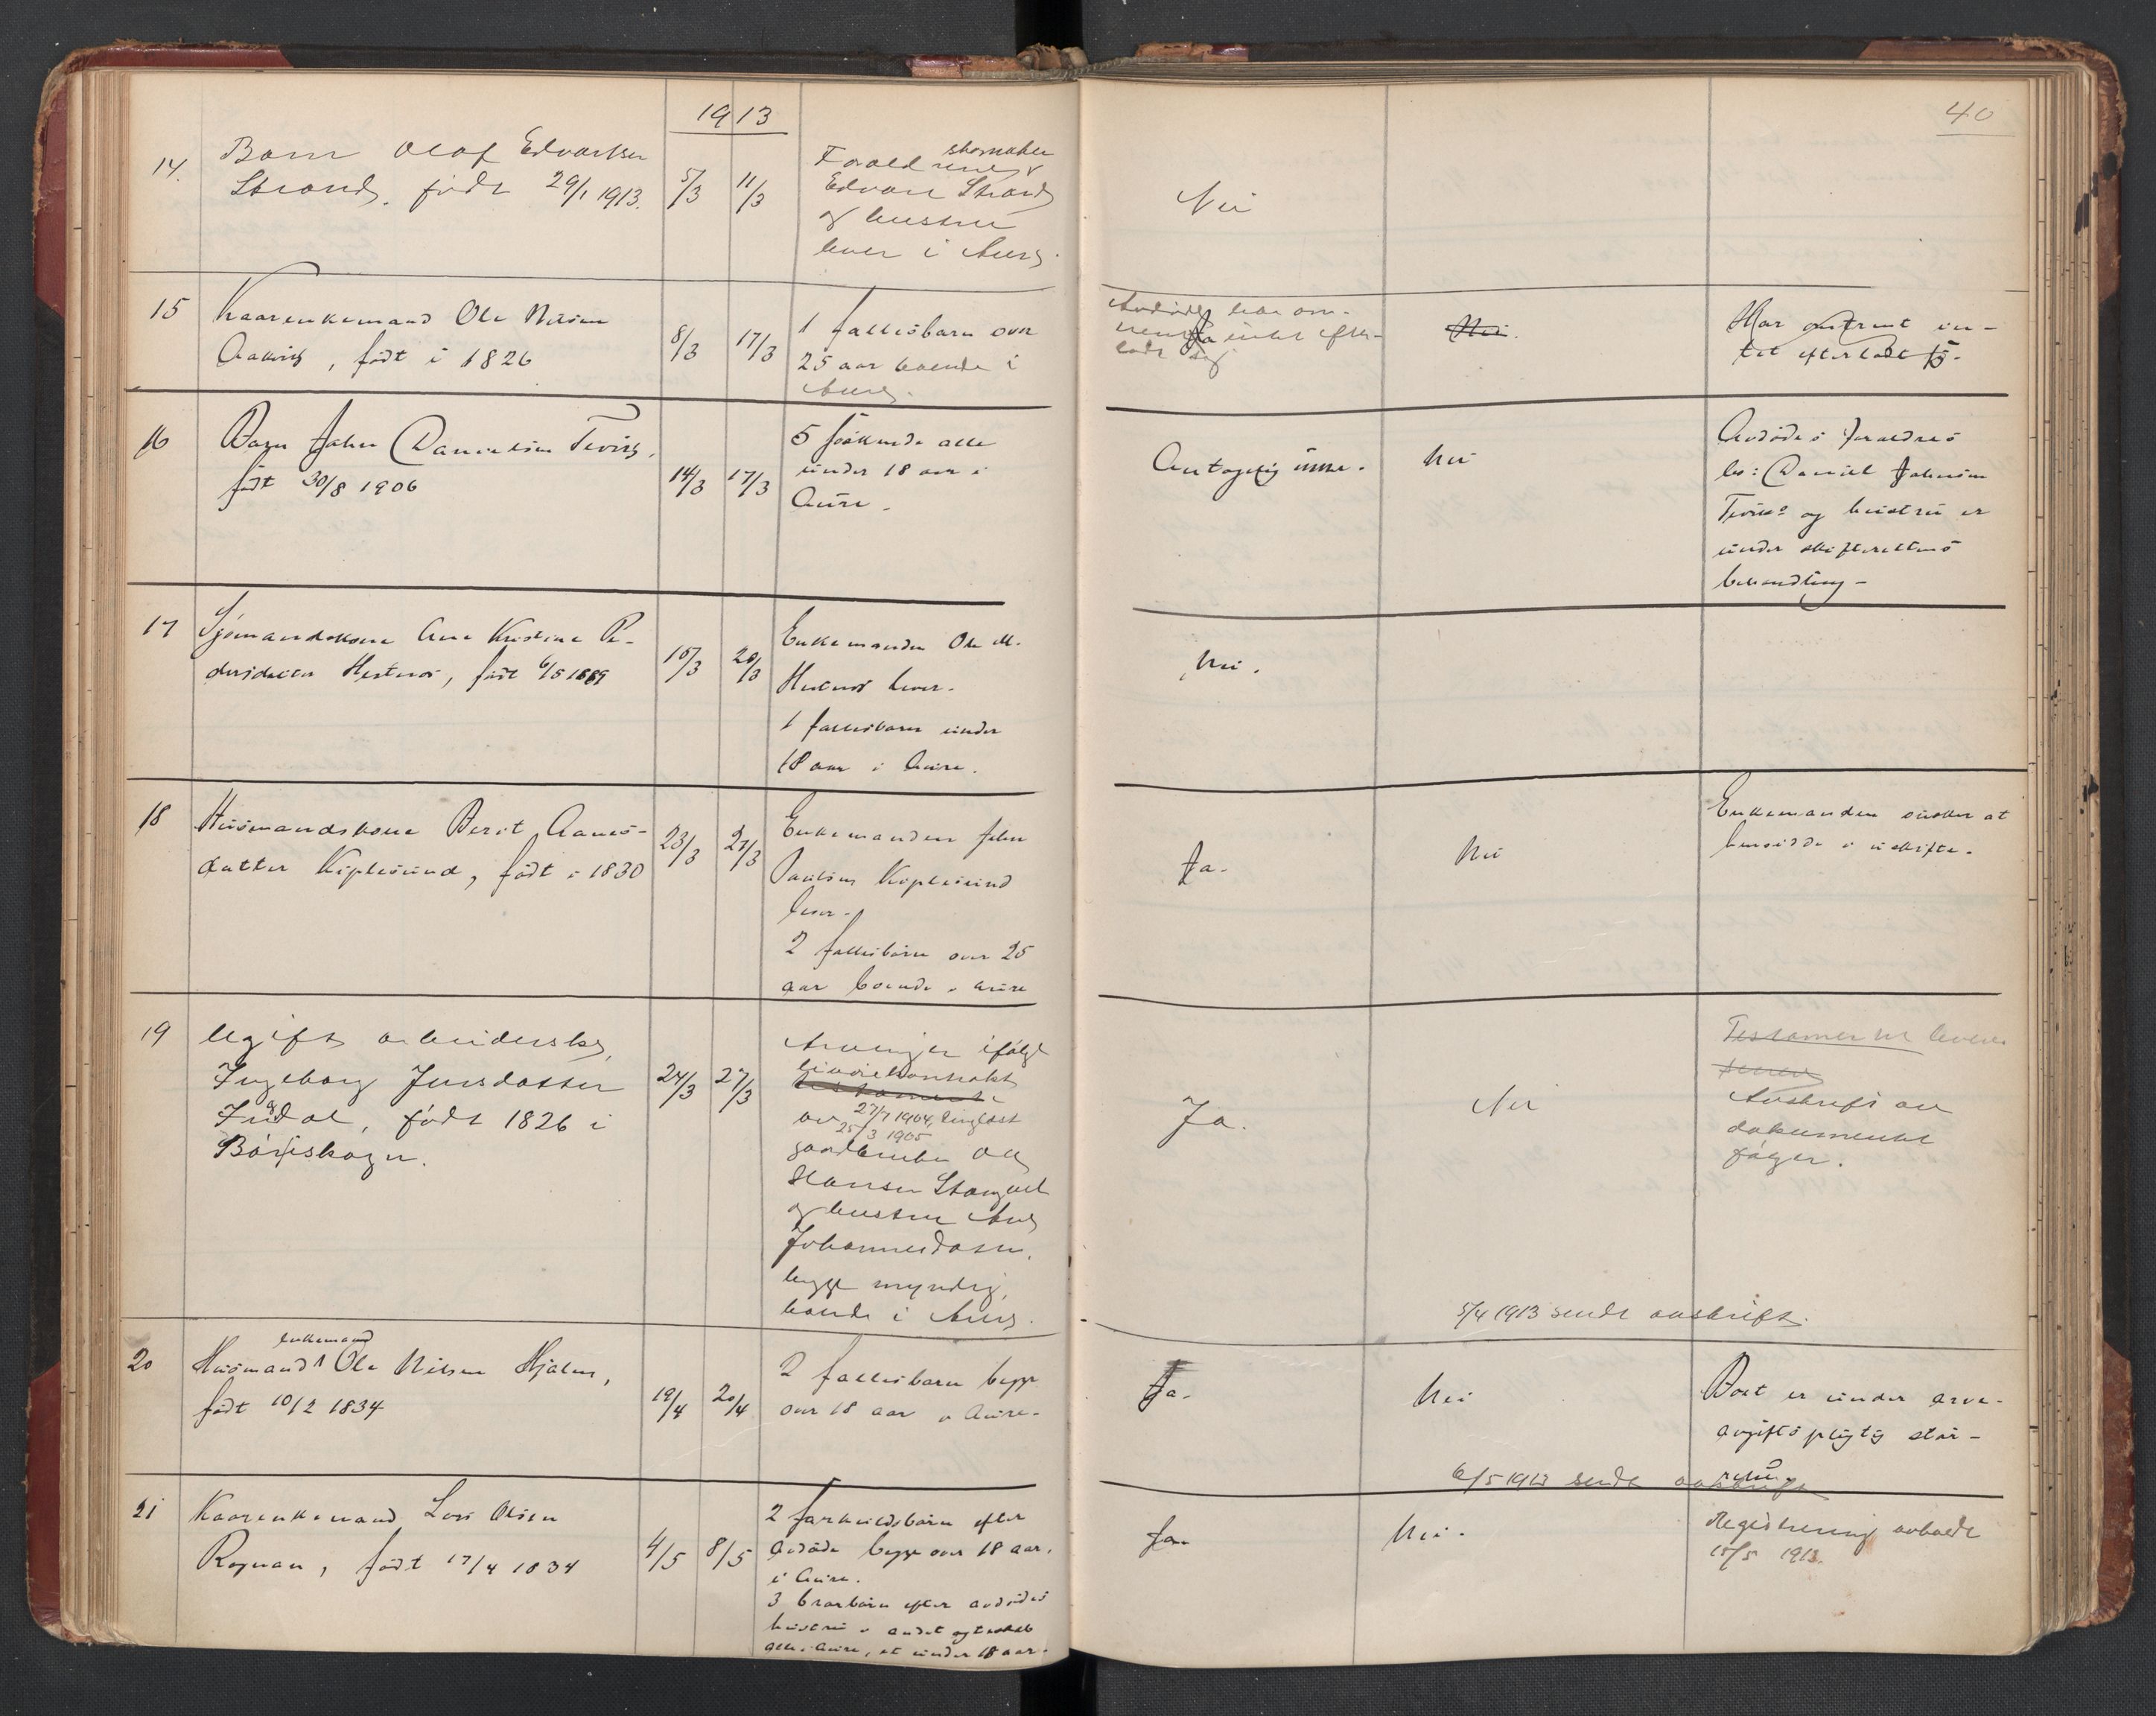 1913
40
14.
Barn Olaf Edvardsen
Strand, født 29/1 1913.
5/3
11/3
skomaker
Forældrene
Edvard Strand
og hustru
lever i Aure.
Nei
15
Kaarenkemand Ole Nilsen
født i 1826
8/3
17/3
1 fællesbarn over
25 aar boende i
Aure.
Avdøde har om-
intet efter-
latt sig
Ja
Nei.
Har omtrent in-
tet efterladt sig.
16
Barn John Danielsen Tevik,
født 30/8 1906
14/3
17/3
5 søskende alle
under 18 aar i
Aure.
Antagelig inne.
Nei
Avdødes forældres
bo: Daniel Johnsen
Teviks og hustru er
under skifterettens
behandling -
17
Sjømandskone Ane Kristine Pe-
dersdatter Hestnes, født 6/5 1889
15/3
20/3
Enkemanden Ole M.
Hestnes lever.
1 fællesbarn under
18 aar i Aure.
Nei.
18
Husmandskone Berit Aames-
datter Kiplesund, født i 1830
23/3
27/3
Enkemanden John
Paulsen Kiplesund
lever.
2 fællesbarn over 25
aar boende i Aure
Ja.
Nei
Enkemanden ønsker at
hensidde i uskifte.
19
Ugift arbeiderske,
Ingeborg Jensdatter
født 1826 i
Børseskogn.
24/3
27/3
Arvinger ifølge
livøiekontrakt
testamente
av 27/7 1904, tinglæst
25/3 1905
gaardbruker Ole
Hansen Stangvik
og hustru Ane
Johannesdatter,
begge myndig,
boende i Aure.
Ja.
Nei
Testamentet leveres
senere
Avskrift av
dokumentet
følger.
5/4 1913 sendt avskrift.
20
enkemand
Husmand Ole Nilsen Hjalen,
født 10/2 1834
19/4
20/4
2 fællesbarn begge
over 18 aar i Aure.
Ja.
Nei
Boet er under arve-
avgiftspligtig stør-
relse.
6/5 1913 sendt avskrift
21
Kaarenkemand Lars Olsen
Rognan, født 17/4 1834
4/5
8/5
2 særkuldsbarn efter
avdøde begge over 18 aar,
i Aure.
3 brorbarn efter avdødes
hustru i andet egteskab
alle i Aure, et under 18 aar.
Ja.
Nei.
Registrering avholdt
15/5 1913.